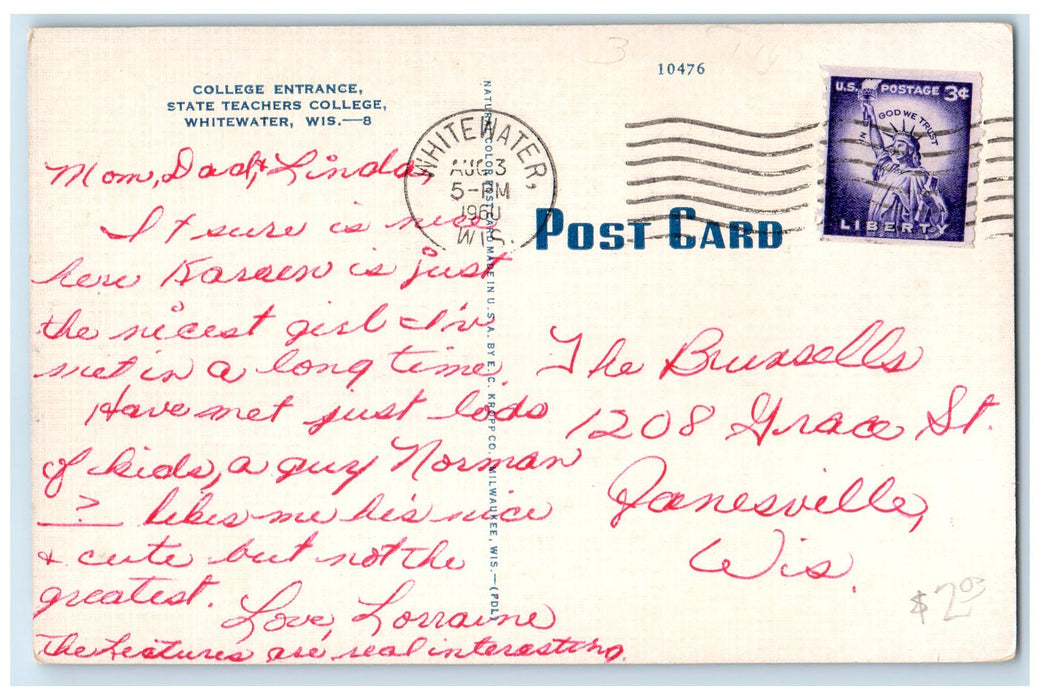 COLLEGE ENTRANCE,
STATE TEACHERS COLLEGE,
WHITEWATER, WIS.—8
Mom, Dad, & Linda,
It sure is nice
here Karen is just
the nicest girl I've
met in a long time.
Have met just lods
of kids, a guy Norman
? likes me he's nice
& cute but not the
greatest.
Love, Lorraine
The lectures are real interesting.
NATURAL COLOR POST CARD MADE IN U.S.A. BY E. C. KROPP CO., MILWAUKEE, WIS.—(PDL)
WHITEWATER,
AUG 3
5-PM
1960
WIS.
10476
U.S. POSTAGE 3¢
IN GOD WE TRUST
LIBERTY
POST CARD
The
1208 Grace St.
Janesville,
Wis.
$2.03